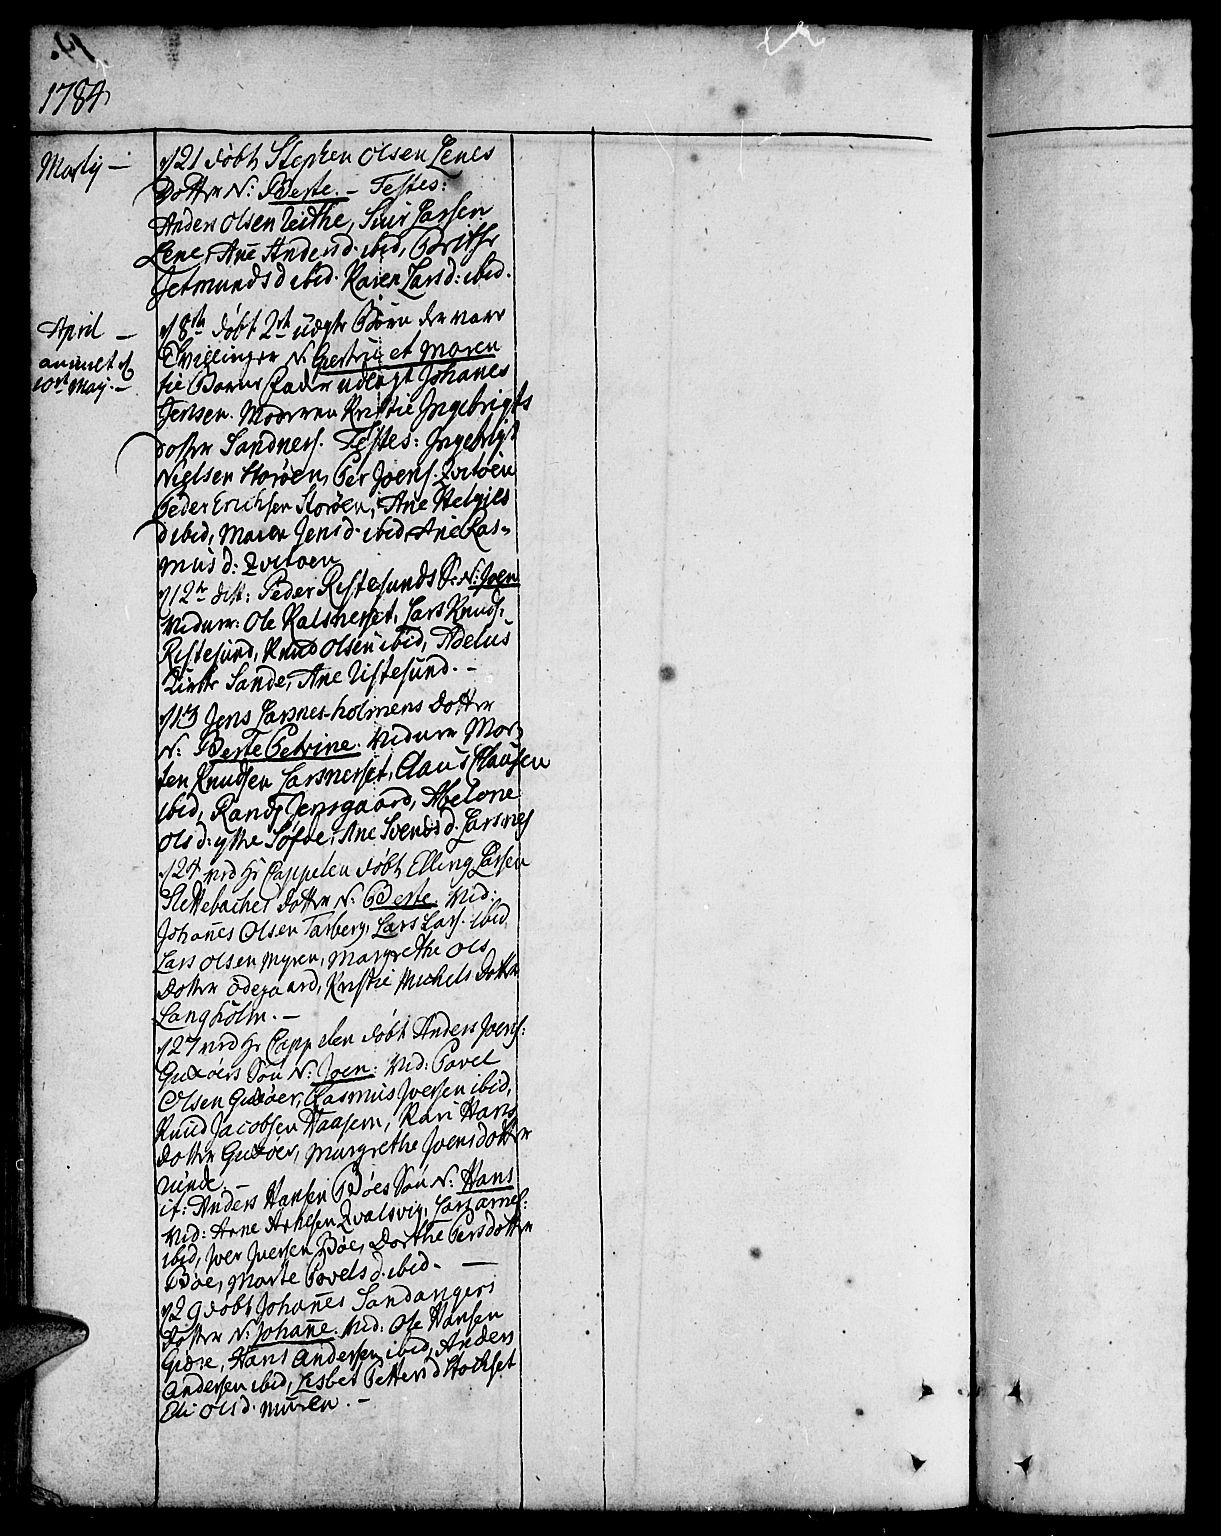 1784
Martij — d/21 døbt Stephen Olsen Lenes
Dotter N: Berte. — Testes:
Anders Olsen Leithe, Siur Larsen
Lene, Ane Andersd. ibid, Brithe
Jetmundsd ibid. Karen Larsd: ibid.
April — d/8de døbt 2de uægte Børn der vare
Tvillinger N. Giertru et Maren
10de Maj. — til Barne Fader udlagt Johanes
Jensen. Moderen Kristie Ingebrigts
dotter Sandnes. Testes: Ingebrigt
Nielsen Storøen, Per Joens. Qvitøen
Peder Erichsen Storøen, Ane Helgies
d ibid, Maren Jensd. ibid, Ane Ras-
musd: Qvitøen
d/12te dito: Peder Ristesunds S. N: Joen
Vidner: Ole Kalsneset, Lars Knuds.
Ristesund, Knud Olsen ibid, Adelus
Sande, Ane Ristesund. —
d/13 Jens Larsnes-holmens Dotter
N: Berte Petrine. Vidner Mor-
ten Knudsen Larsneset, Claus Clausen
ibid, Randj Jensgaard, Abelone
Olsd: ytre Søfde, Ane Svendsd. Larsnes
d/24 ved Hr Cappelen døbt Elling Larsen
Slettebaches Dotter N: Berte. Vid:
Johanes Olsen Tarberg, Lars Lars. ibid,
Lars Olsen Myren, Margrethe Ols
Dotter Ødegaard, Kristie Michels Dotter
Langholm. —
d/27 ved Hr Cappelen døbt Anders Joens:
Gudøers Søn N: Joen: Vid: Povel
Olsen Gudøer, Rasmus Iversen ibid,
Knud Jacobsen Haasem, Kari Hans
dotter Gudøer, Margrethe Joensdotter
runde. —
it: Anders Hansen Bøes Søn N: Hans
Vid: Arne Arnesen Qvalsvig, Lars Arnes:
ibid, Iver Iversen Bøe, Dorthe Persdotter
Bøe, Marte Povelsd. ibid. —
d/29 døbt Johanes Sandangers
Dotter N: Johane. Vid: Ole Hansen
Gidre, Hans Andersen ibid, Anders
Andersen ibid, Lisbet Pettersd Stochset
Eli Olsd. Muren. —